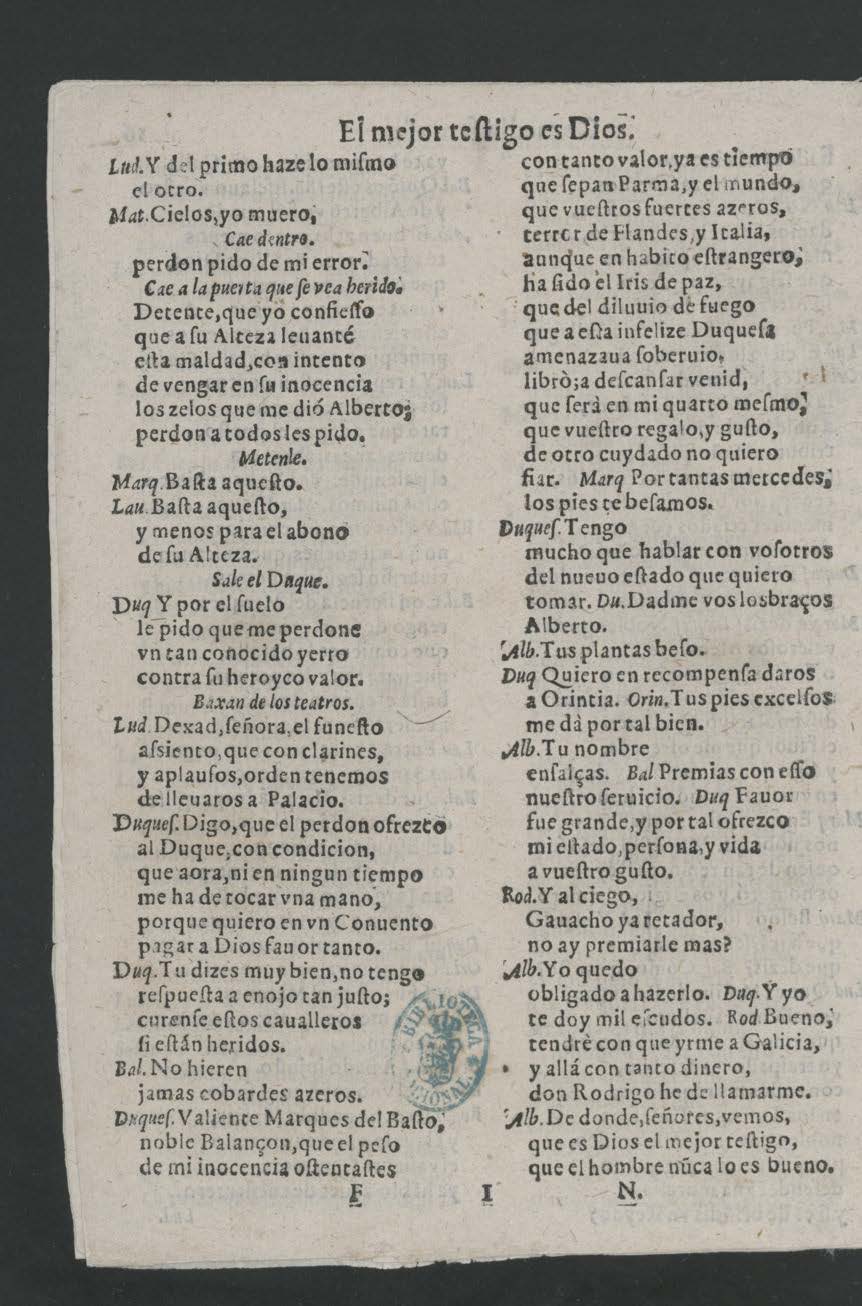 El mejor testigo es Dios.
Lud. Y del primo haze lo miſmo
el otro.
Mat. Cielos, yo muero,
Cae dentro.
perdon pido de mi error.
Cae a la puerta que ſe vea herido.
Detente, que yo confieſſo
que a ſu Alteza leuanté
eſta maldad, con intento
de vengar en ſu inocencia
los zelos que me dió Alberto;
perdon a todos les pido.
Metenle.
Marq. Baſta aqueſto.
Lau. Baſta aqueſto,
y menos para el abono
de ſu Alteza.
Sale el Duque.
Duq Y por el ſuelo
le pido que me perdone
vn tan conocido yerro
contra ſu heroyco valor.
Baxan de los teatros.
Lud. Dexad, ſeñora, el funeſto
aſsiento, que con clarines,
y aplauſos, orden tenemos
de lleuaros a Palacio.
Duqueſ. Digo, que el perdon ofrezco
al Duque, con condicion,
que aora, ni en ningun tiempo
me ha de tocar vna mano,
porque quiero en vn Conuento
pagar a Dios fauor tanto.
Duq. Tu dizes muy bien, no tengo
reſpueſta a enojo tan juſto;
curenſe eſtos caualleros
ſi eſtán heridos.
Bal. No hieren
jamas cobardes azeros.
Duqueſ. Valiente Marques del Baſto,
noble Balançon, que el peſo
de mi inocencia oſtentaſtes
con tanto valor, ya es tiempo
que ſepan Parma, y el mundo,
que vueſtros fuertes azeros,
terror de Flandes, y Italia,
aunque en habito eſtrangero,
ha ſido el Iris de paz,
que del diluuio de fuego
que a eſta infelize Duqueſa
amenazaua ſoberuio,
librò; a deſcanſar venid,
que ſerà en mi quarto meſmo,
que vueſtro regalo, y guſto,
de otro cuydado no quiero
fiar. Marq Por tantas mercedes,
los pies te beſamos.
Duqueſ. Tengo
mucho que hablar con voſotros
del nueuo eſtado que quiero
tomar. Du. Dadme vos los braços
Alberto.
Alb. Tus plantas beſo.
Duq Quiero en recompenſa daros
a Orintia. Orin. Tus pies excelſos
me dà por tal bien.
Alb. Tu nombre
enſalças. Bal Premias con eſſo
nueſtro ſeruicio. Duq Fauor
fue grande, y por tal ofrezco
mi eſtado, perſona, y vida
a vueſtro guſto.
Rod. Y al ciego,
Gauacho ya retador,
no ay premiarle mas?
Alb. Yo quedo
obligado a hazerlo. Duq. Y yo
te doy mil eſcudos. Rod Bueno,
tendrè con que yrme a Galicia,
y allá con tanto dinero,
don Rodrigo he de llamarme.
Alb. De donde, ſeñores, vemos,
que es Dios el mejor teſtigo,
que el hombre nũca lo es bueno.
F I N.
BIBLIOTECA NACIONAL